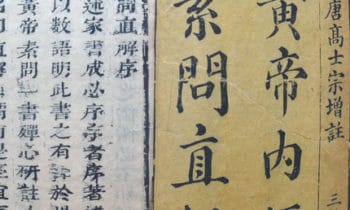 唐高士宗增註 三
黃帝內
素問直
問直解序
述家書成必序序者序著
以數語明此書之有於
黃帝素問一書殫心研註